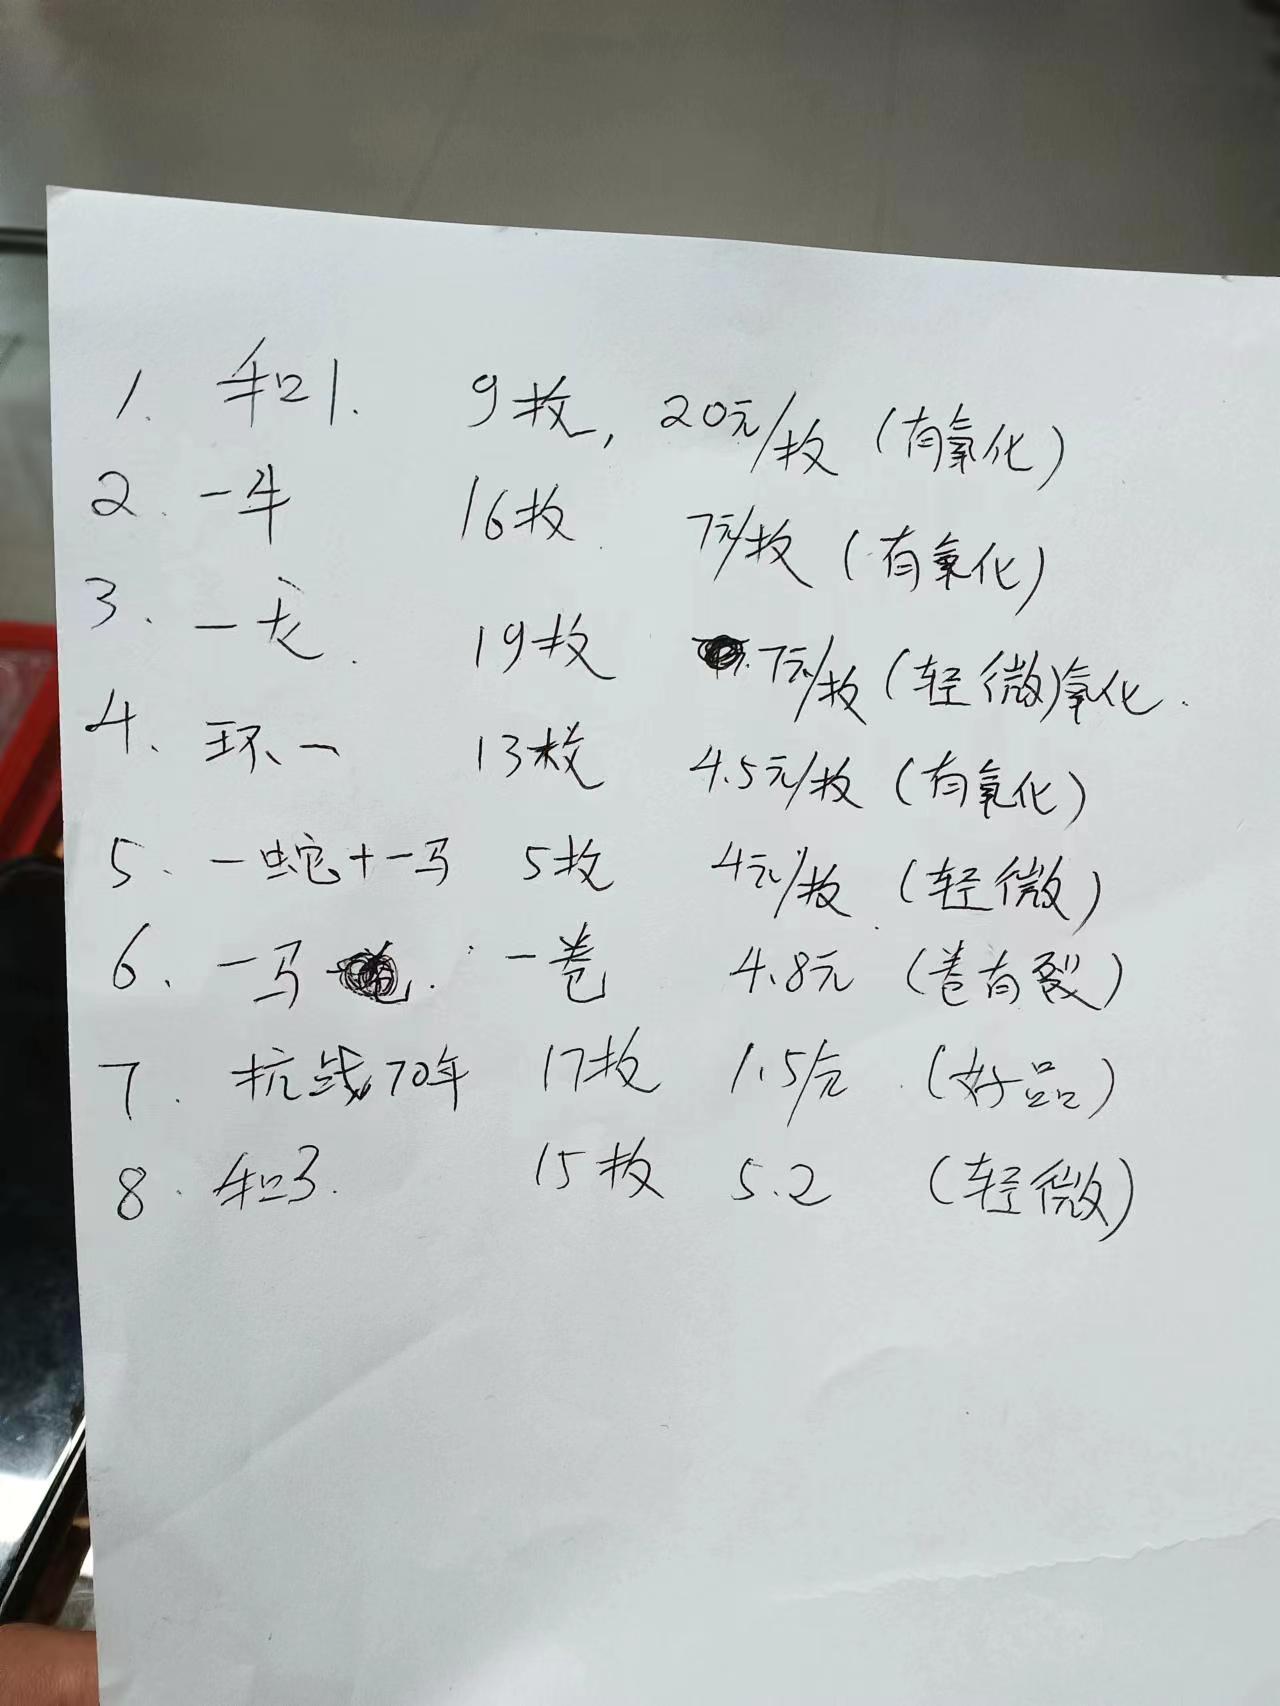 1. 和1. 9枚, 20元/枚 (有氧化)
2. 一牛 16枚 7元/枚 (有氧化)
3. 一龙. 19枚 7元/枚 (轻微)氧化.
4. 环一 13枚 4.5元/枚 (有氧化)
5. 一蛇+一马 5枚 4元/枚 (轻微)
6. 一马 一卷 4.8元 (卷有裂)
7. 抗战70年 17枚 1.5/元 (好品)
8. 和3. 15枚 5.2 (轻微)